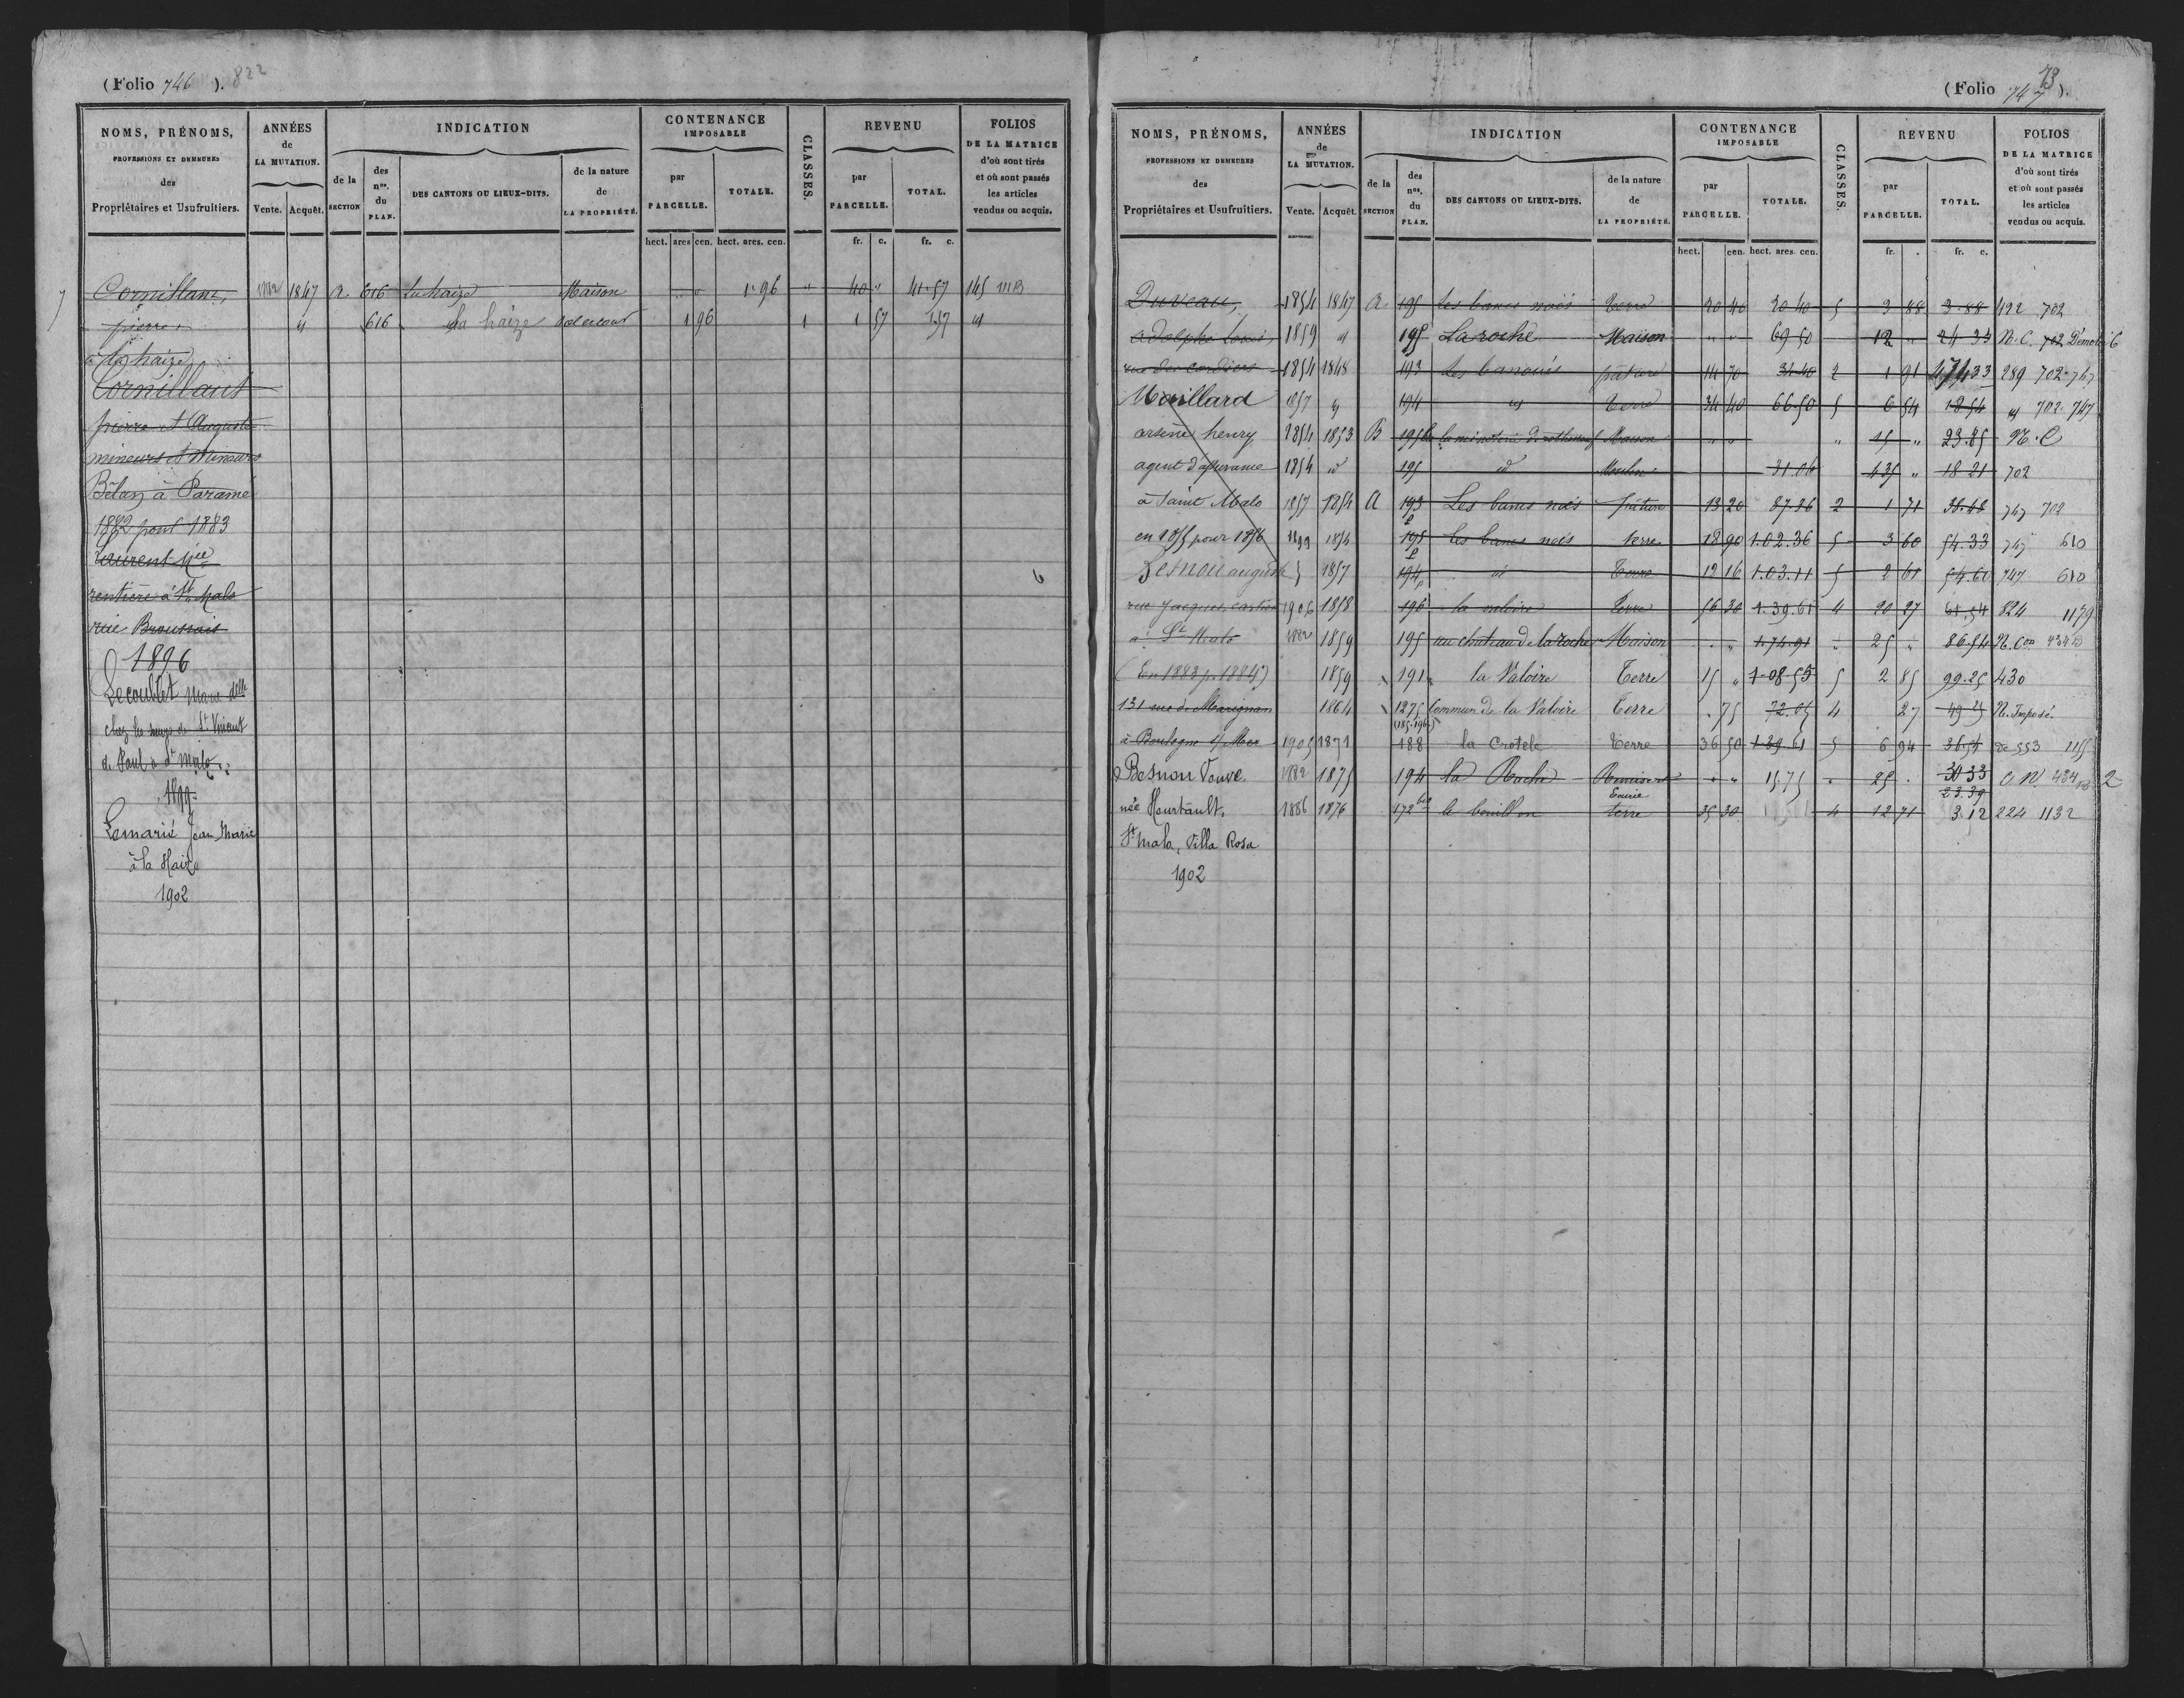 (Folio 746 ). 822
NOMS, PRÉNOMS, PROFESSIONS ET DEMEURES des Propriétaires et Usufruitiers.
ANNÉES de LA MUTATION. Vente. Acquêt.
INDICATION de la SECTION des nos. du PLAN. DES CANTONS OU LIEUX-DITS. de la nature de LA PROPRIÉTÉ.
CONTENANCE IMPOSABLE par PARCELLE. TOTALE.
CLASSES.
REVENU par PARCELLE. TOTAL.
FOLIOS DE LA MATRICE d'où sont tirés et où sont passés les articles vendus ou acquis.
hect. ares cen. hect. ares. cen. fr. c. fr. c.
Cornillant, 1882 1847 A. 616 La haize Maison " " 1.96 " 40 " 41.57 145 111B
pierre, " 616 La haize Sol et cour 1 96 1 1 57 1.57 "
à la haize
Cornillaut
pierre et Auguste
mineurs et Mineurs
Bélan à Paramé
1882 pour 1883
Laurent
rentière à St Malo
rue Broussais
1896
Lecoublet Marie delle
chez les sœurs de St Vincent
de Paul à St Malo
1899
Lemarié Jean Marie
à la Haize
1902
(Folio 747 ). 73
NOMS, PRÉNOMS, PROFESSIONS ET DEMEURES des Propriétaires et Usufruitiers.
ANNÉES de LA MUTATION. Vente. Acquêt.
INDICATION de la SECTION des nos. du PLAN. DES CANTONS OU LIEUX-DITS. de la nature de LA PROPRIÉTÉ.
CONTENANCE IMPOSABLE par PARCELLE. TOTALE.
CLASSES.
REVENU par PARCELLE. TOTAL.
FOLIOS DE LA MATRICE d'où sont tirés et où sont passés les articles vendus ou acquis.
hect. cen. hect. ares. cen. fr. . fr. c.
Duveau, 1854 1847 A 195 Les bancs noës Terre 20 40 20 40 5 3 88 3.88 492 702
adolphe Louis, 1859 " 195 La roche Maison " " 69 50 12 " 24 33 N.C. 702 Démoli 6
rue des cordiers 1854 1848 193 Les pature 14 70 34 40 2 1 91 289 702-747
Maillard 1857 " 194 " Terre 34 40 66.50 5 6 54 18 54 " 702 747
arsène henry 1854 1853 B 195 Maison " " " 15 " 23.85 N.C
agent d'assurance 1854 id 195 id Moulin 31.06 435 " 18 21 702
à Saint Malo 1857 1854 A 193 Les bancs noës pature 13 20 87.26 2 1 71 38.68 747 702
en 1855 pour 1856 1899 1854 195 Les bancs noës terre 18 90 1.02.36 5 3 60 54.33 747 610
Besnou auguste 1857 194 id Terre 12 16 1.03.11 5 2 61 54.60 747 610
rue Jacques cartier 1906 1858 196 la valoire Terre 56 30 1.39.61 4 20 27 61.54 824 1179
à St Malo 1882 1859 195 au chateau de la roche Maison " " 1.74.91 " 25 " 86.54 N. Con 434B
(En 1883 p. 1884) 1859 191 la Valoire Terre 15 " 1-08-55 5 2 85 99.25 430
131 rue de Marignan 1864 1275 Commun de la Valoire Terre . 75 72.05 4 27 49 25 N. Imposé.
(185.196)
à Boulogne s/ Mer 1905 1871 188 la Crotele Terre 36 50 1 39 61 5 6 94 36.54 de 553 1155
Besnou Veuve 1882 1875 194 La Roche Remise et Ecurie " " 15.75 " 25 . 30 33 C N 434 2
23.39
née Heurtault, 1886 1876 172 bis le bouillon terre 35 30 4 12 71 3.12 224 1132
St Malo, Villa Rosa
1902